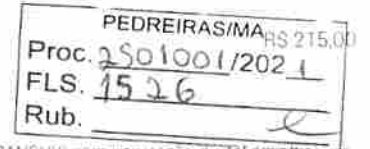 PEDREIRAS/MA
R$ 215,00
Proc. 2501001/2021
FLS. 1526
Rub.